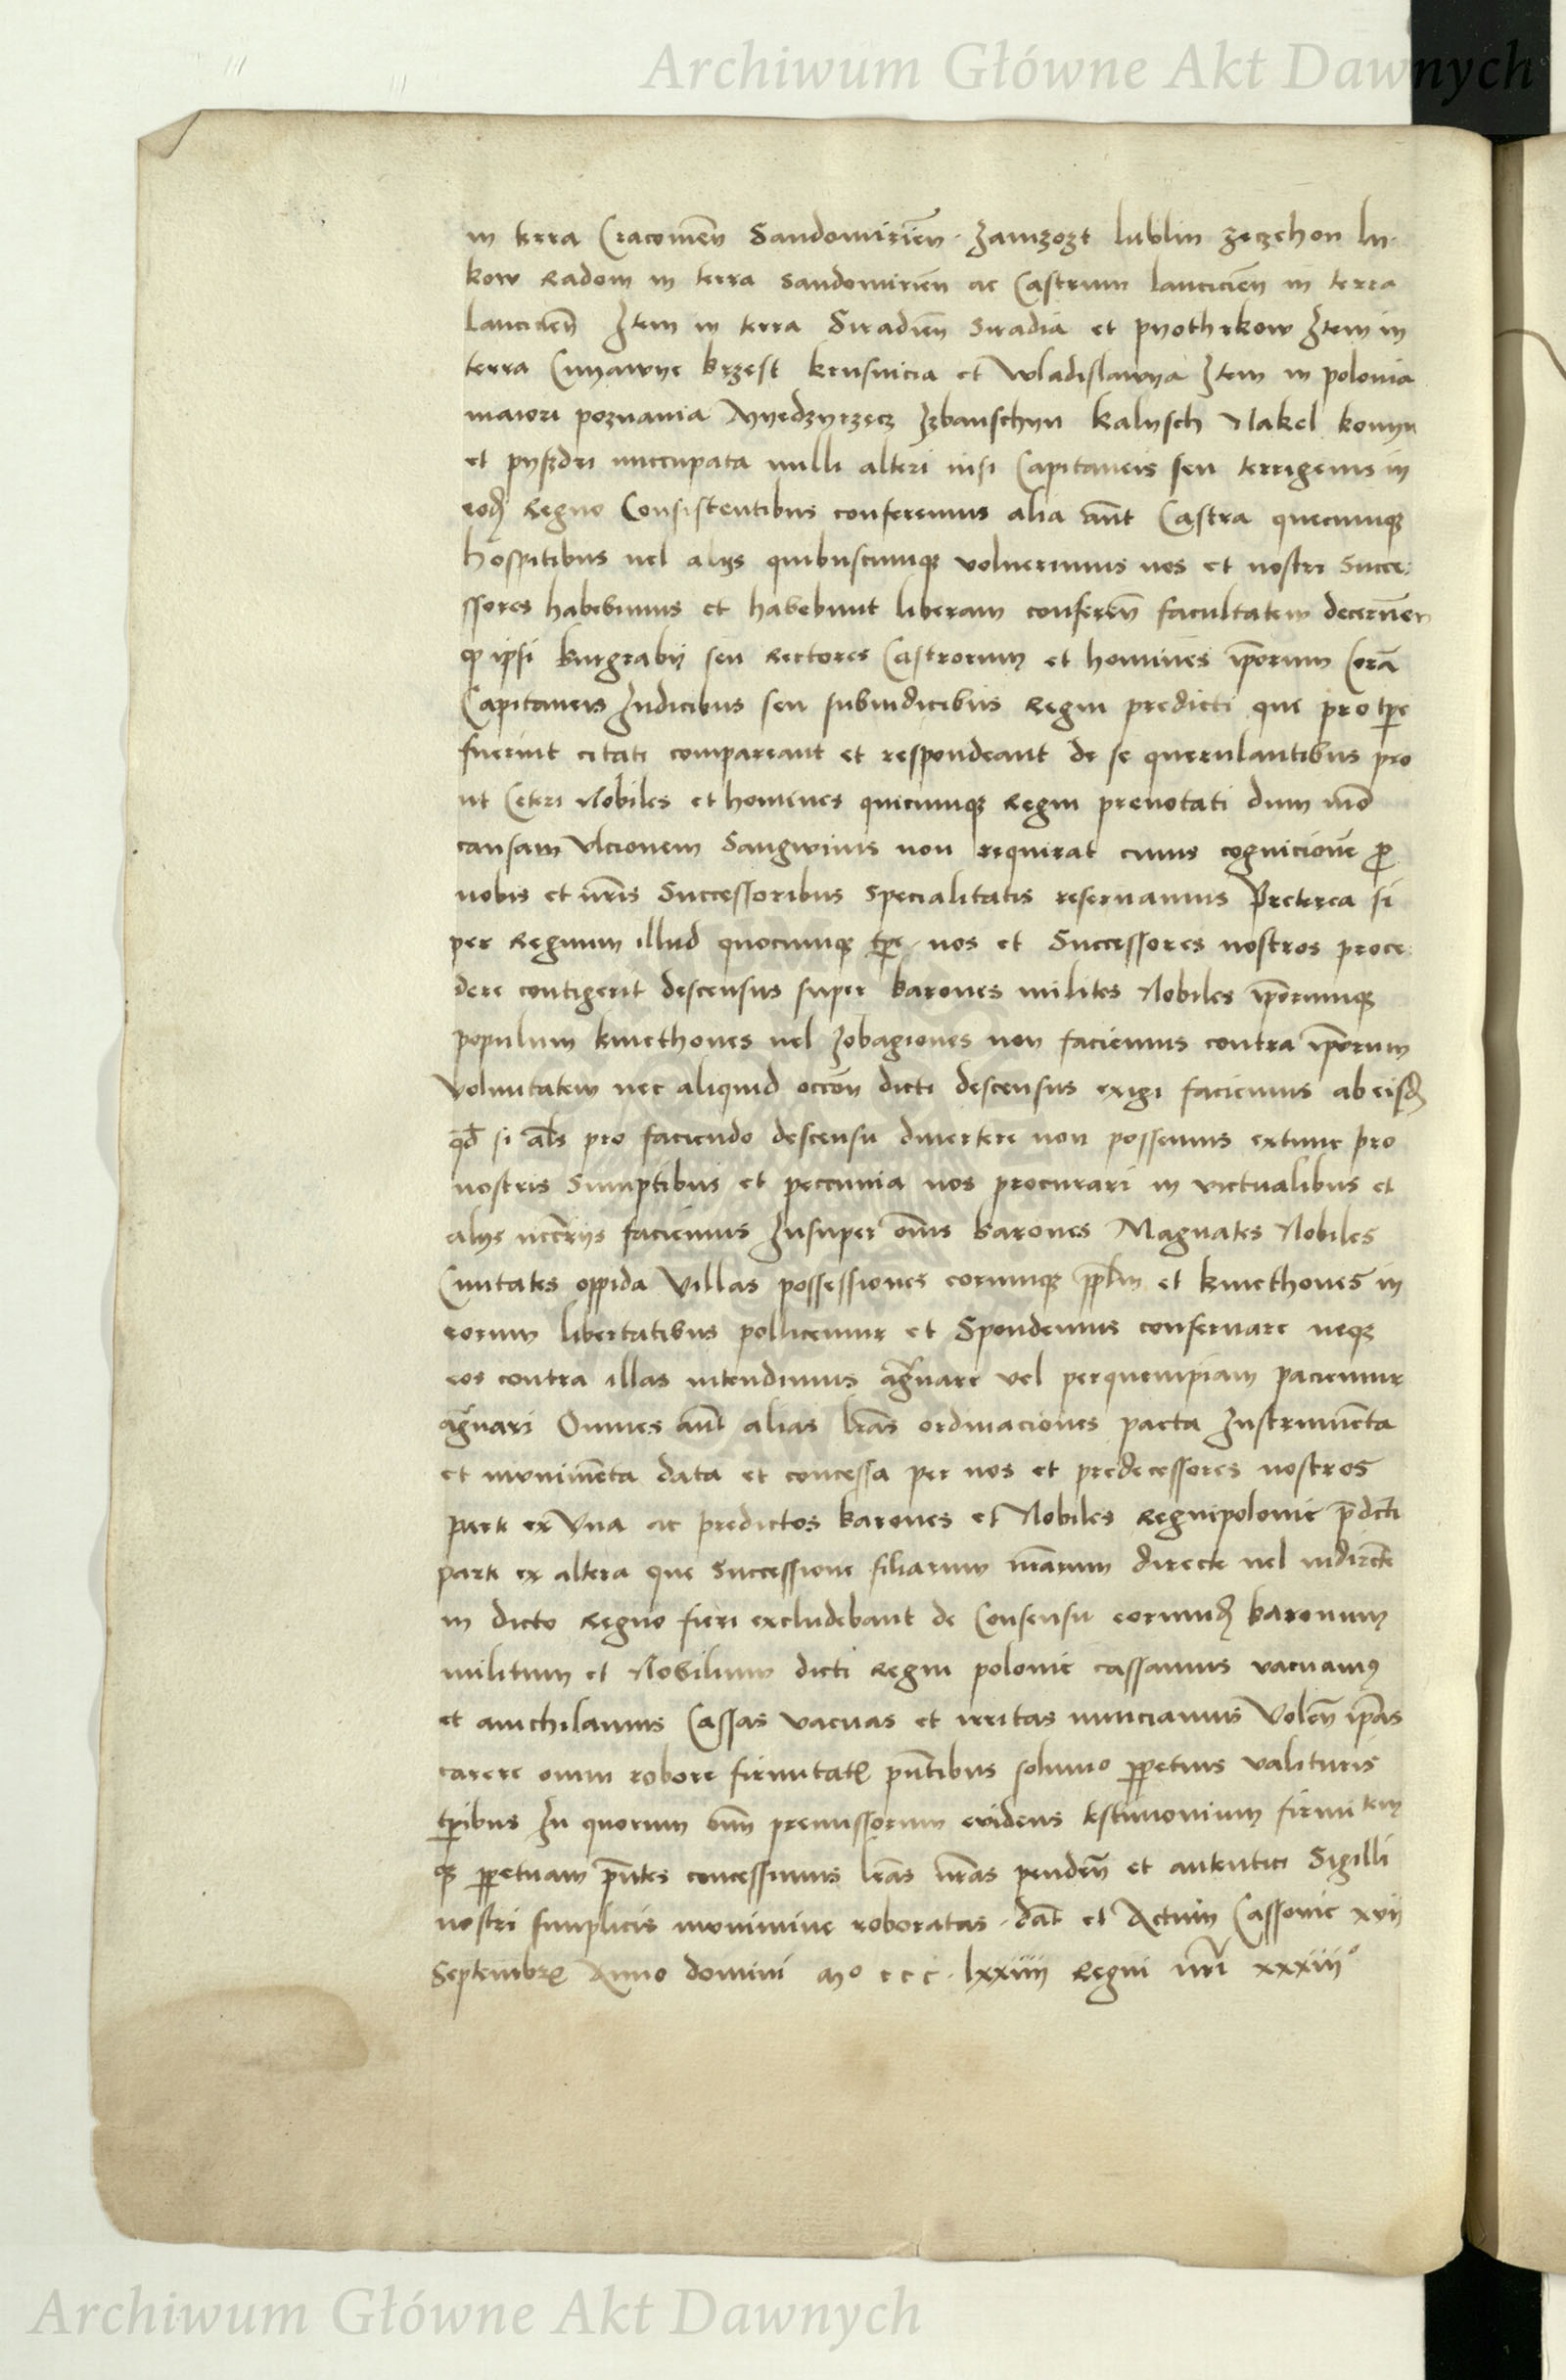 Archiwum Główne Akt Dawnych
in terra Cracouien̄ Sandomirien̄ · Zawzozt lublin zeczehon lu·
kow Radom in terra Sandomirien̄ ac Castrum lancicien̄ in terra
lancicien̄ Item in terra Siradien̄ Siradia et pyothrkow Item in
terra Cuyawye brzest krusuicia et Wladislauya Item in polonia
maiori poznania Myedzyrzecz Izbanschyn kalysch Nakel konyn
et pyszdri nuccupata nulli alteri nisi Capitaneis seu terrigenis in
eod᷒ Regno Consistentibus conferemus alia aūt Castra quecumqꝫ
hospitibus uel alijs quibuscumqꝫ voluerimus nos et nostri Succe:
ssores habebimus et habebunt liberam conferen̄ facultatem decernen̄
ꝙ ipsi burgrabij seu Rectores Castrorum et homines ip̄orum Corā
Capitaneis Iudicibus seu subiudicibus Regni predicti que pro tp̄e
fuerint citati compareant et respondeant de se querulantibus pro
ut Ceteri Nobiles et homines quicumqꝫ Regni prenotati dum mō
causam Vlcionem Sangwinis non requirat cuius cognicionē ꝓ
nobis et nr̄is Successoribus Specialitatis reseruamus Preterea si
per Regnum illud quocumqꝫ tp̄e nos et Successores nostros proce:
dere contigerit descensus super barones milites Nobiles ip̄orumqꝫ
populum kmethones uel Iobagiones non faciemus contra ip̄orum
voluntatem nec aliquid occōn dicti descensus exigi faciemus ab eisd᷒
qd̄ si al̄s pro faciendo descensu diuertere non possemus extunc pro
nostris Sumptibus et peccunia nos procurari in victualibus et
alijs nccrijs faciemus Insuper om̄s barones Magnates Nobiles
Ciuitates oppida Villas possessiones eorumqꝫ ppl̄m et kmethones in
eorum libertatibus pollicemur et Spondemus conseruare neqꝫ
eos contra illas intendimus ag̃uare vel perquempiam paciemur
ag̃uari Omnes aūt alias lr̄as ordinaciones pacta Instrumēta
et monimēta data et concessa per nos et predecessores nostros
parte ex Vna ac predictos barones et Nobiles Regnipolonie p̄dc̄ti
parte ex altera que Successione filiarum nr̄arum directe uel indirēcte
in dicto Regno fieri excludebant de Consensu eorumd᷒ baronum
militum et Nobilium dicti Regni polonie cassamus vacuamꝰ
et anichilamus Cassas vacuas et irritas nunciamus Volen̄ ip̄as
carere omni robore firmitatꝭ pn̄tibus solummo ꝑpetuis valituris
tp̄ibus In quorum om̄ premissorum euidens testimonium firmitem
qꝫ ꝑpetuam pn̄tes concessimus lr̄as nr̄as penden̄ et autentici Sigilli
nostri simplicis monimine roboratas · dat̄ et Actum Cassouie xvij
Septembrꝭ Anno domini mº c c c · lxxiiij Regni nr̄i xxxiijº
Archiwum Główne Akt Dawnych